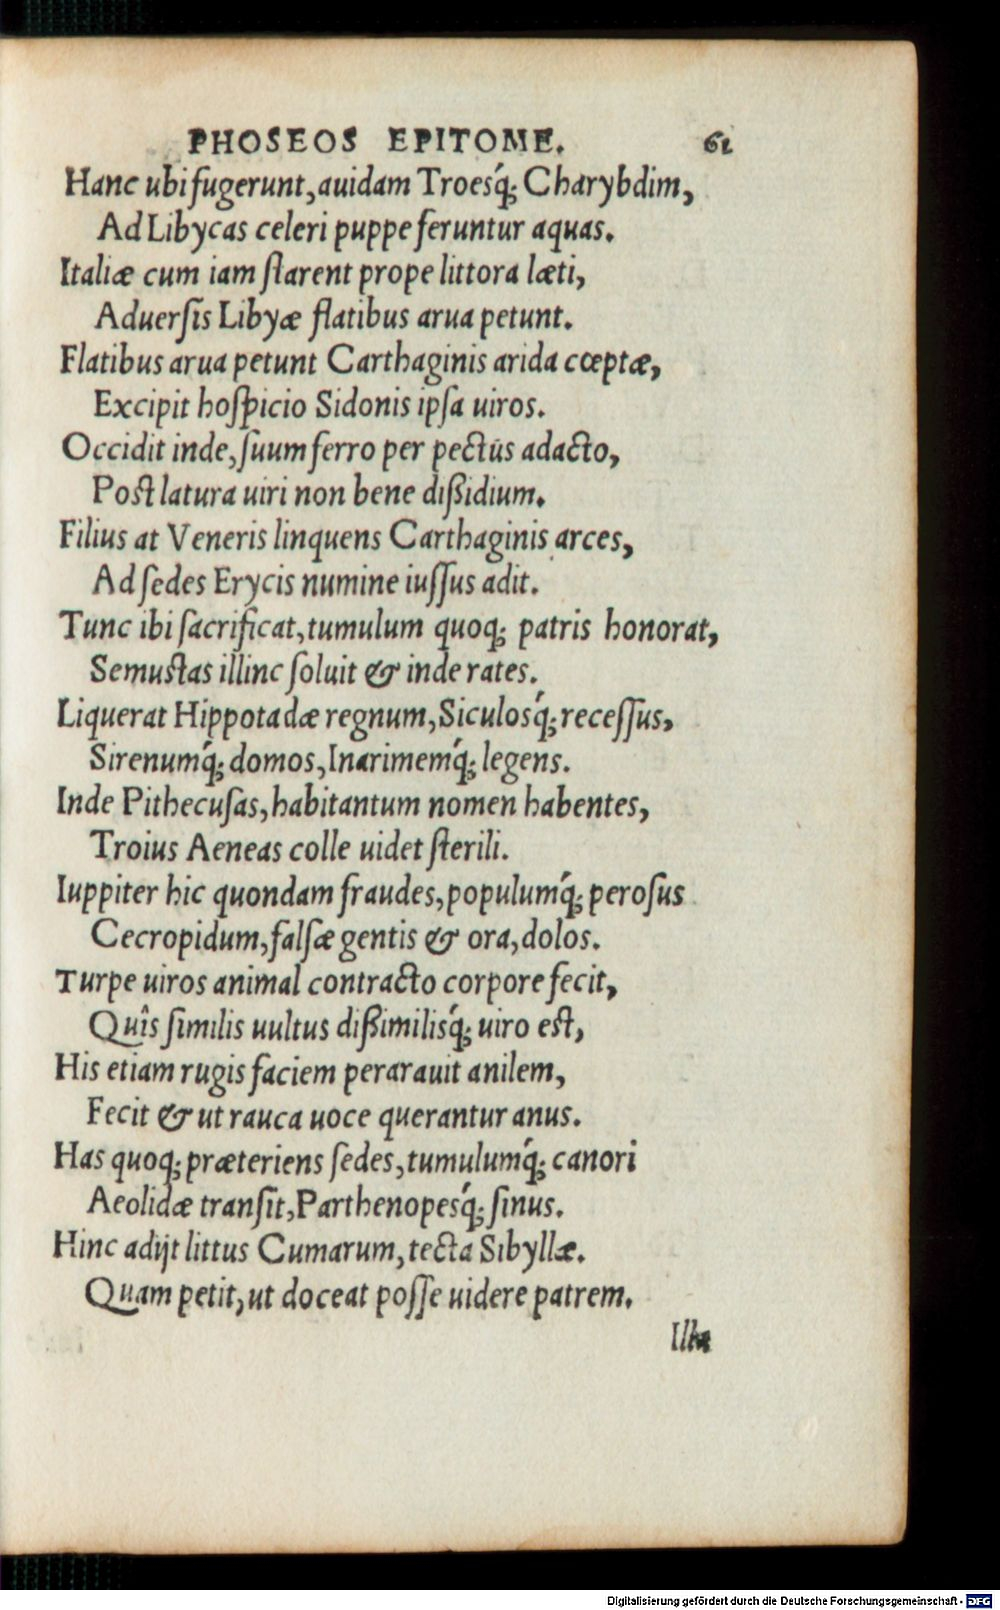 PHOSEOS EPITOME. 61
Hanc ubi fugerunt, auidam Troesq́; Charybdim,
Ad Libycas celeri puppe feruntur aquas.
Italiæ cum iam ſtarent prope littora læti,
Aduerſis Libyæ flatibus arua petunt.
Flatibus arua petunt Carthaginis arida cœptæ,
Excipit hoſpicio Sidonis ipſa uiros.
Occidit inde, ſuum ferro per pectus adacto,
Poſt latura uiri non bene dißidium.
Filius at Veneris linquens Carthaginis arces,
Ad ſedes Erycis numine iuſſus adit.
Tunc ibi ſacrificat, tumulum quoq; patris honorat,
Semuſtas illinc ſoluit & inde rates.
Liquerat Hippotadæ regnum, Siculosq́; receſſus,
Sirenumq́; domos, Inarimemq́; legens.
Inde Pithecuſas, habitantum nomen habentes,
Troius Aeneas colle uidet ſterili.
Iuppiter hic quondam fraudes, populumq́; peroſus
Cecropidum, falſæ gentis & ora, dolos.
Turpe uiros animal contracto corpore fecit,
Quîs ſimilis uultus dißimilisq́; uiro eſt,
His etiam rugis faciem perarauit anilem,
Fecit & ut rauca uoce querantur anus.
Has quoq; præteriens ſedes, tumulumq́; canori
Aeolidæ tranſit, Parthenopesq́; ſinus.
Hinc adijt littus Cumarum, tecta Sibyllæ.
Quam petit, ut doceat poſſe uidere patrem.
Illa
Digitalisierung gefördert durch die Deutsche Forschungsgemeinschaft - DFG